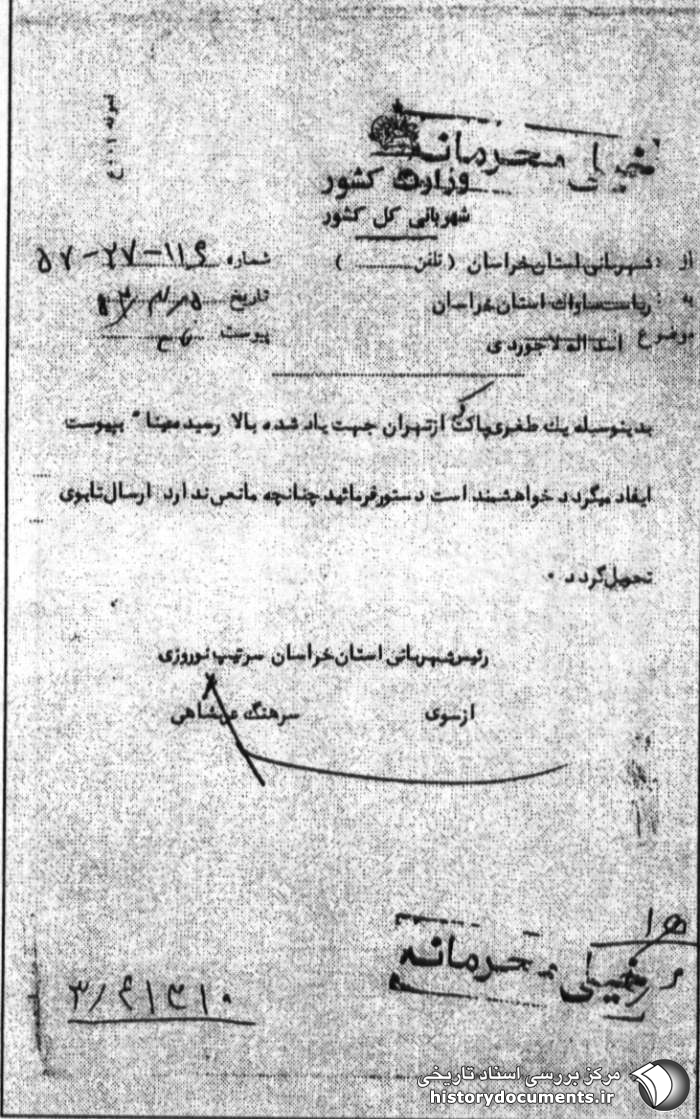 نمونه ۱۰۰۱ع
خیلی محرمانه
وزارت کشور
شهربانی کل کشور
از : شهربانی استان خراسان ( تلفن ........ )
شماره ۵۷-۲۷-۱۱۶
به : ریاست ساواک استان خراسان
تاریخ
موضوع اسداله لاجوردی
پیوست
بدینوسیله یك طغری پاکت از تهران جهت یاد شده بالا رسید معینا" بپیوست
ایفاد میگردد خواهشمند است دستور فرمائید چنانچه مانعی ندارد ارسال تا بوی
تحویل گردد ۰
رئیس شهربانی استان خراسان سرتیپ نوروزی
از سوی سرهنگ
خیلی محرمانه
مرکز بررسی اسناد تاریخی
historydocuments.ir